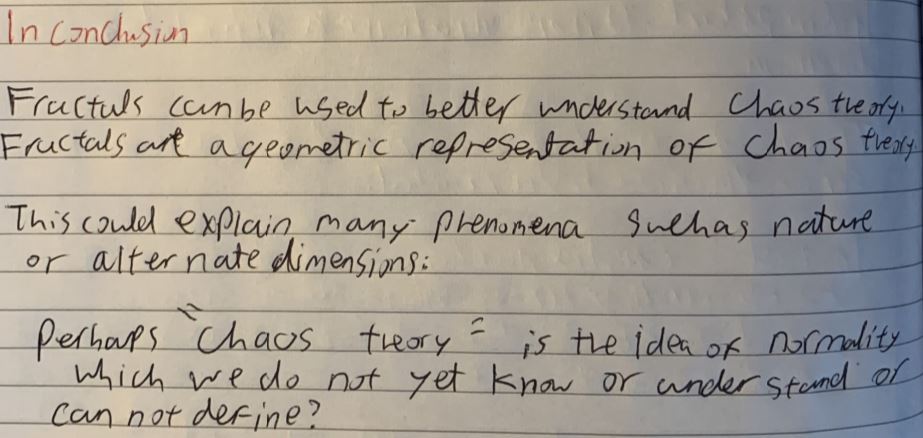 In Conclusion
Fractals can be used to better understand Chaos theory.
Fractals are a geometric representation of Chaos theory
This could explain many phenomena such as nature
or alternate dimensions.
Perhaps "Chaos theory" is the idea of normality
which we do not yet know or understand or
can not define?